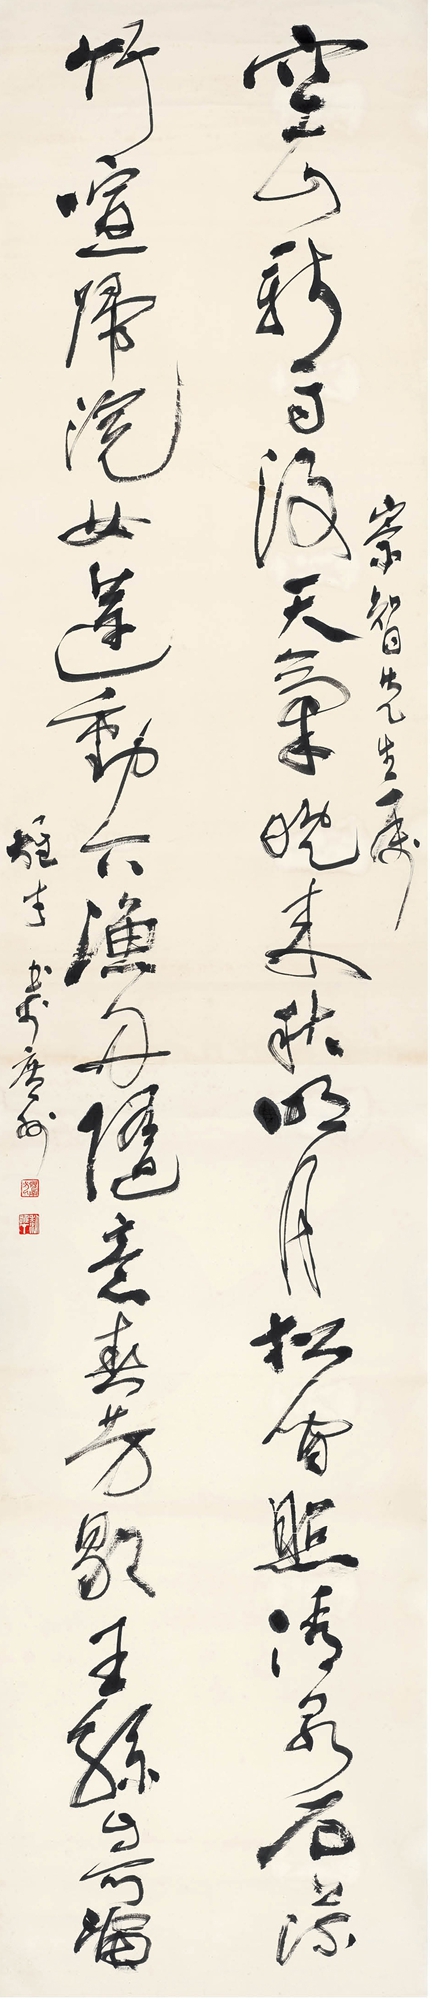 崇智先生屬
空山新雨後天氣晚來秋明月松間照清泉石上流
竹喧歸浣女蓮動下漁舟隨意春芳歇王孫自可留
雄才書於廣州